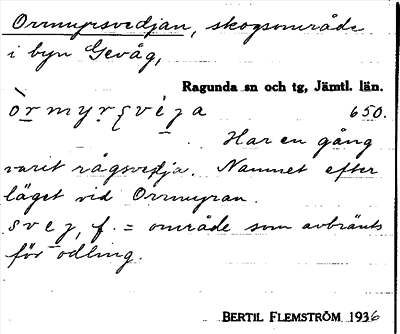 Orrmyrsvedjan, skogsområde
i byn Gevåg,
Ragunda sn och tg, Jämtl. län.
òrmyrʃveja 650.
Har en gång
varit rågsvedja. Namnet efter
läget vid Orrmyran.
svej, f. = område som avbränts
för odling.
BERTIL FLEMSTRÖM 1936